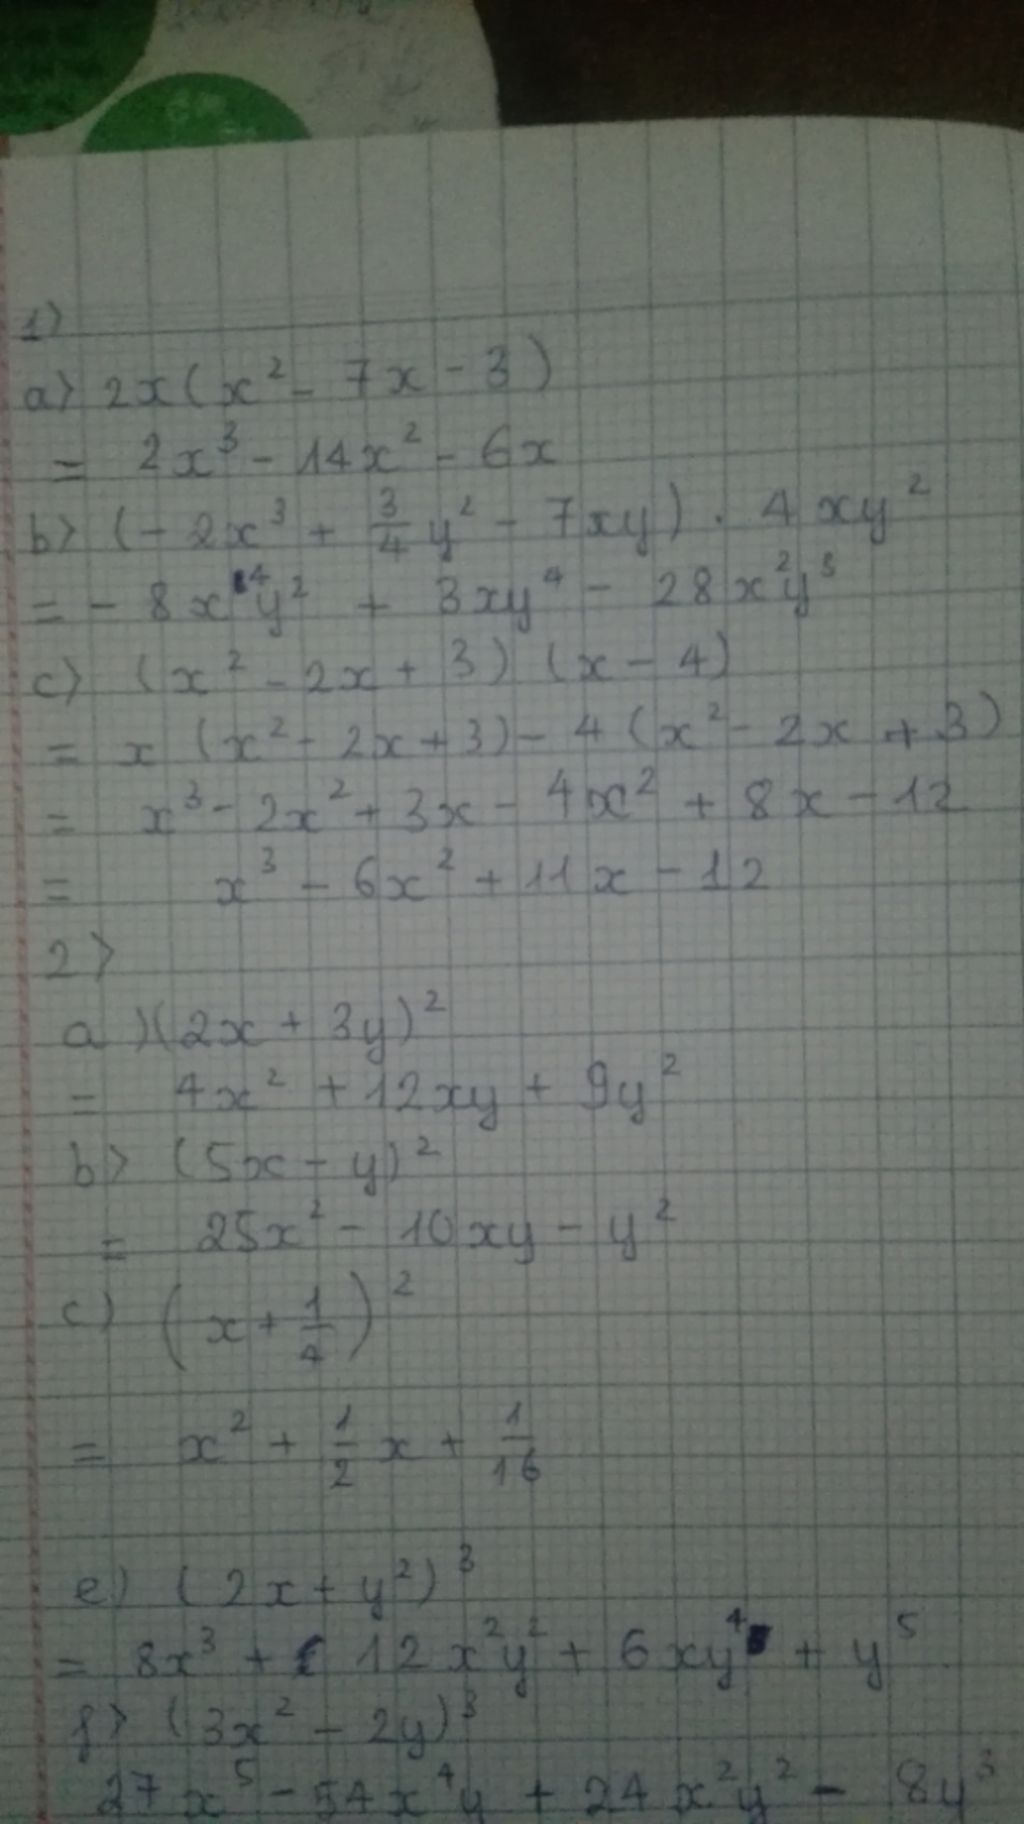 1)
a) 2x(x² - 7x - 3)
= 2x³ - 14x² - 6x
b) (- 2x³ + 3/4 y² - 7xy) . 4xy²
= - 8x⁴y² + 3xy⁴ - 28x²y³
c) (x² - 2x + 3) (x - 4)
= x (x² - 2x + 3) - 4 (x² - 2x + 3)
= x³ - 2x² + 3x - 4x² + 8x - 12
= x³ - 6x² + 11x - 12
2)
a) (2x + 3y)²
= 4x² + 12xy + 9y²
b) (5x - y)²
= 25x² - 10xy - y²
c) (x + 1/4)²
= x² + 1/2 x + 1/16
e) (2x + y²)³
= 8x³ + 12x²y² + 6xy⁴ + y⁵
f) (3x² - 2y)³
27x⁵ - 54x⁴y + 24x²y² - 8y³